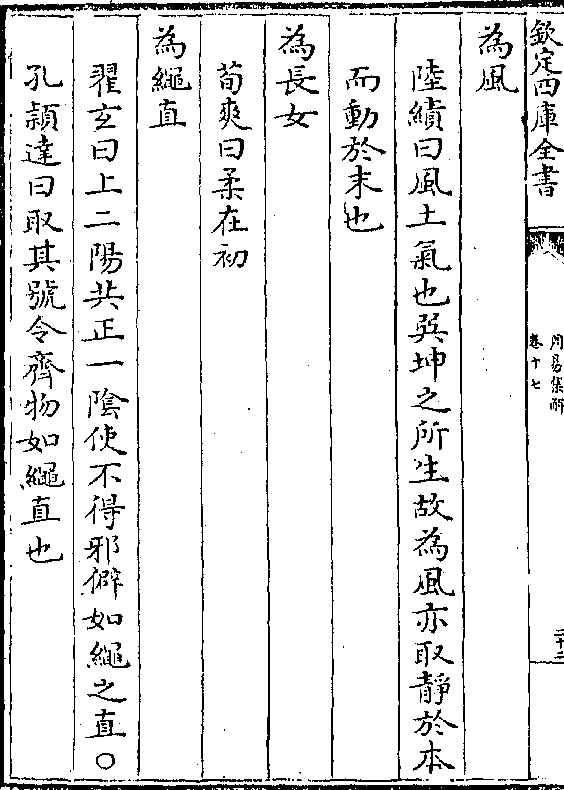 欽定四庫全書
周易集解
卷十七
二十三
為風
陸績曰風土氣也㢲坤之所生故為風亦取靜於本
而動於末也
為長女
荀爽曰柔在初
為繩直
翟玄曰上二陽共正一隂使不得邪僻如繩之直○
孔頴達曰取其號令齊物如繩直也